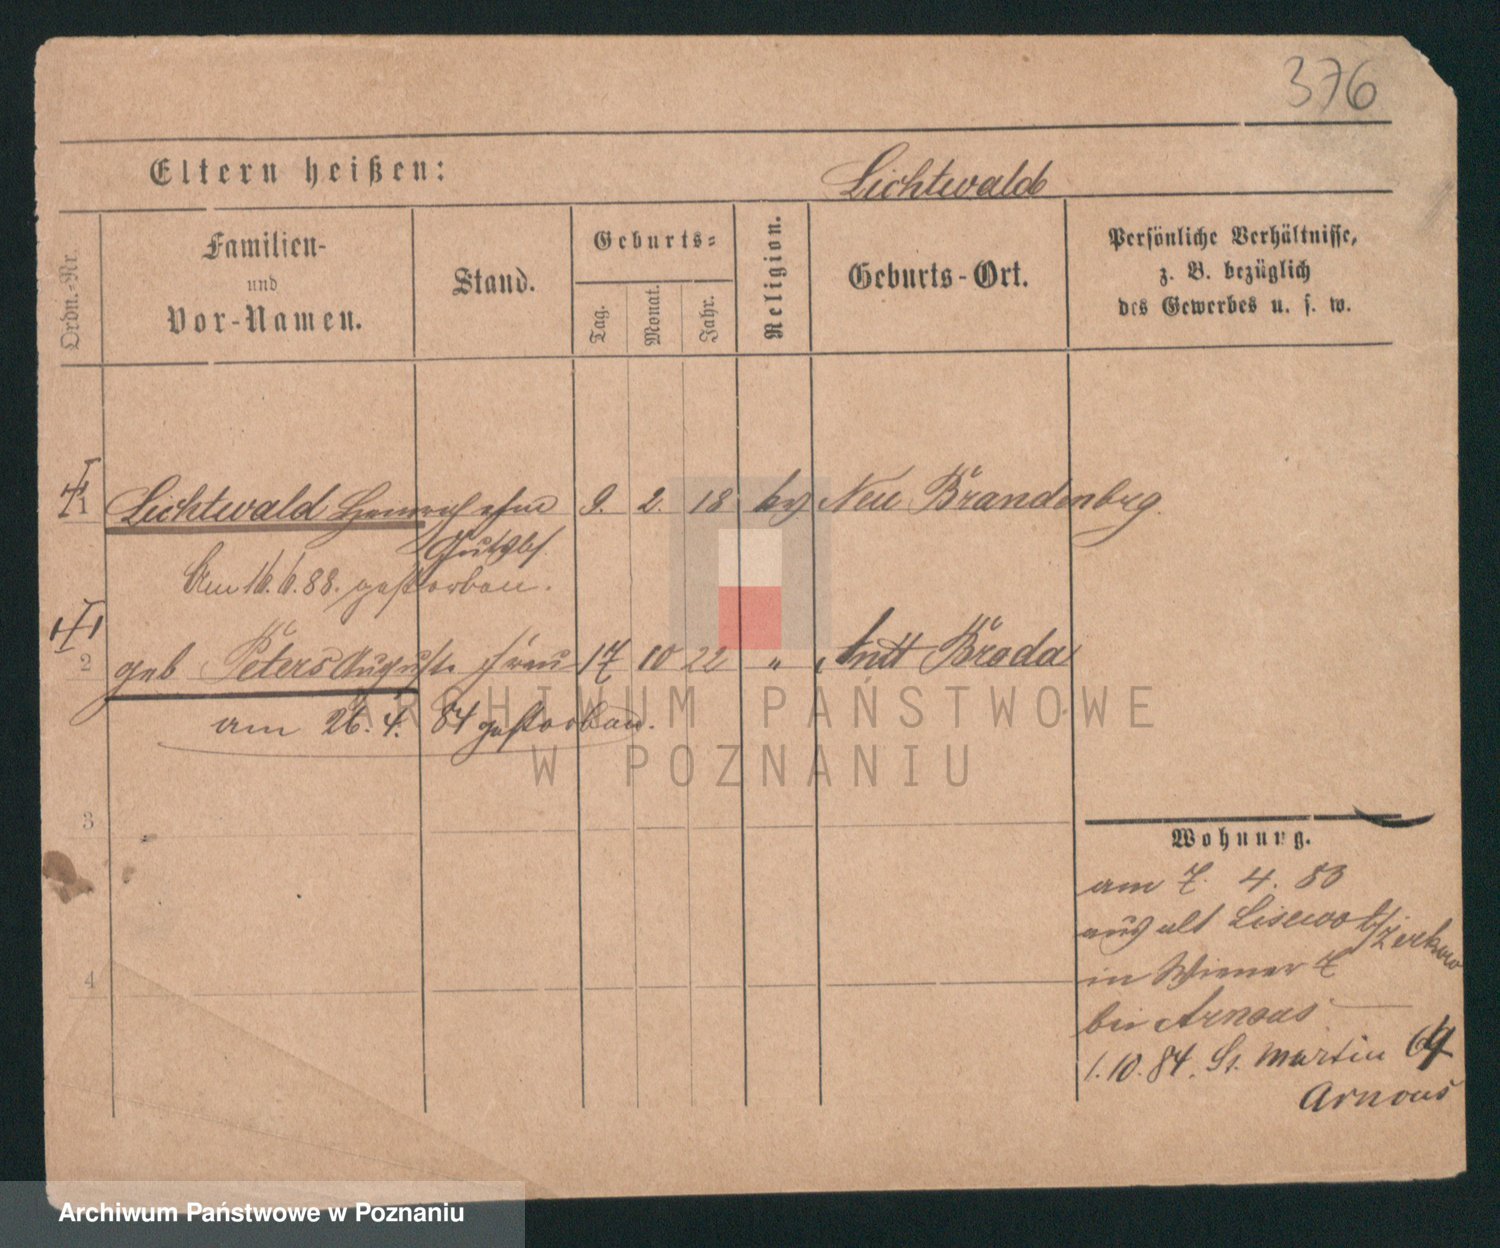 376
Eltern heißen:
Lichtwald
Ordn.-Nr.
Familien-
und
Vor-Namen.
Stand.
Geburts-
Tag.
Monat.
Jahr.
Religion.
Geburts-Ort.
Persönliche Verhältnisse,
z. B. bezüglich
des Gewerbes u. s. w.
1 Lichtwald Heinrich 9. 2. 18 ev Neu Brandenbrg.
Gutsbs.
Am 16.6.88. gestorben.
2 geb Peters Auguste Frau 17 10 22 " Broda
am 26.4. 84 gestorben.
3
4
Wohnung.
am 7. 4. 83
aus alt Lisewo b/Zerkow
in Wiener 7
bei Arnous
1.10.84. St. Martin 64
Arnous
ARCHIWUM PAŃSTWOWE
W POZNANIU
Archiwum Państwowe w Poznaniu